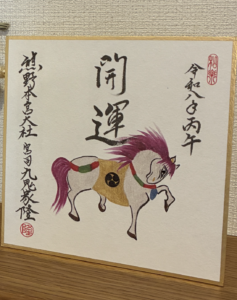 令和八年丙午
開運
熊野本宮大社
宮司九鬼家隆